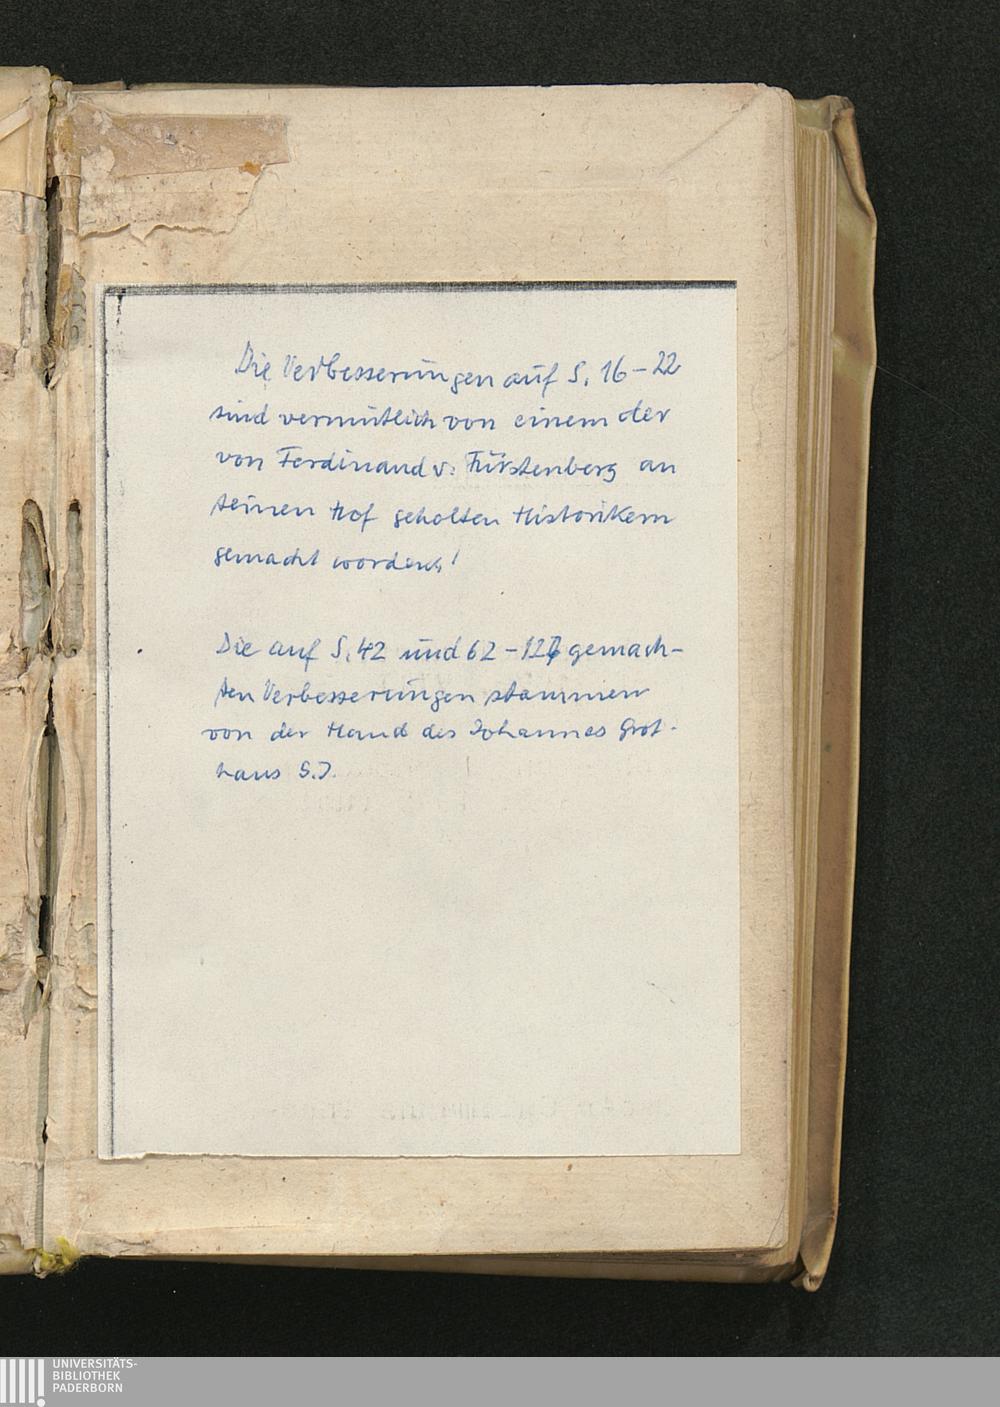 Die Verbesserungen auf S. 16-22
sind vermutlich von einem der
von Ferdinand v. Fürstenberg an
seinen Hof geholten Historikern
gemacht worden!

Die auf S. 42 und 62-127 gemach-
ten Verbesserungen stammen
von der Hand des Johannes Grot-
haus S.J.
UNIVERSITÄTS-
BIBLIOTHEK
PADERBORN